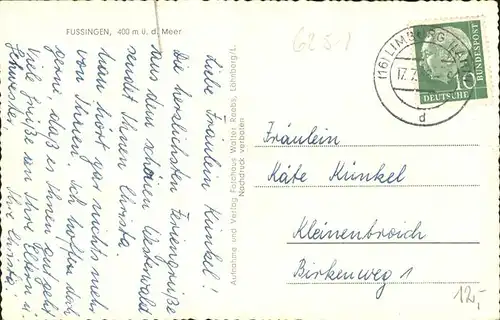 FUSSINGEN, 400 m ü. d. Meer
Liebe Fräulein Künkel!
Die herzlichsten Feriengrüße
aus dem schönen Westerwald
sendet Ihnen Christa.
Man hört gar nichts mehr
von Ihnen. Ich hoffe doch
gern, daß es Ihnen gut geht
Viele Grüße an Ihre Eltern u.
Schwester,
Ihre Christa
Aufnahme und Verlag Fotohaus Walter Raabs, Löhnberg/L.
Nachdruck verboten
625-1
(16) LIMBURG
17.7.
d
10
DEUTSCHE
BUNDESPOST
Fräulein
Käte Künkel
Kleinenbroich
Birkenweg 1
12,-